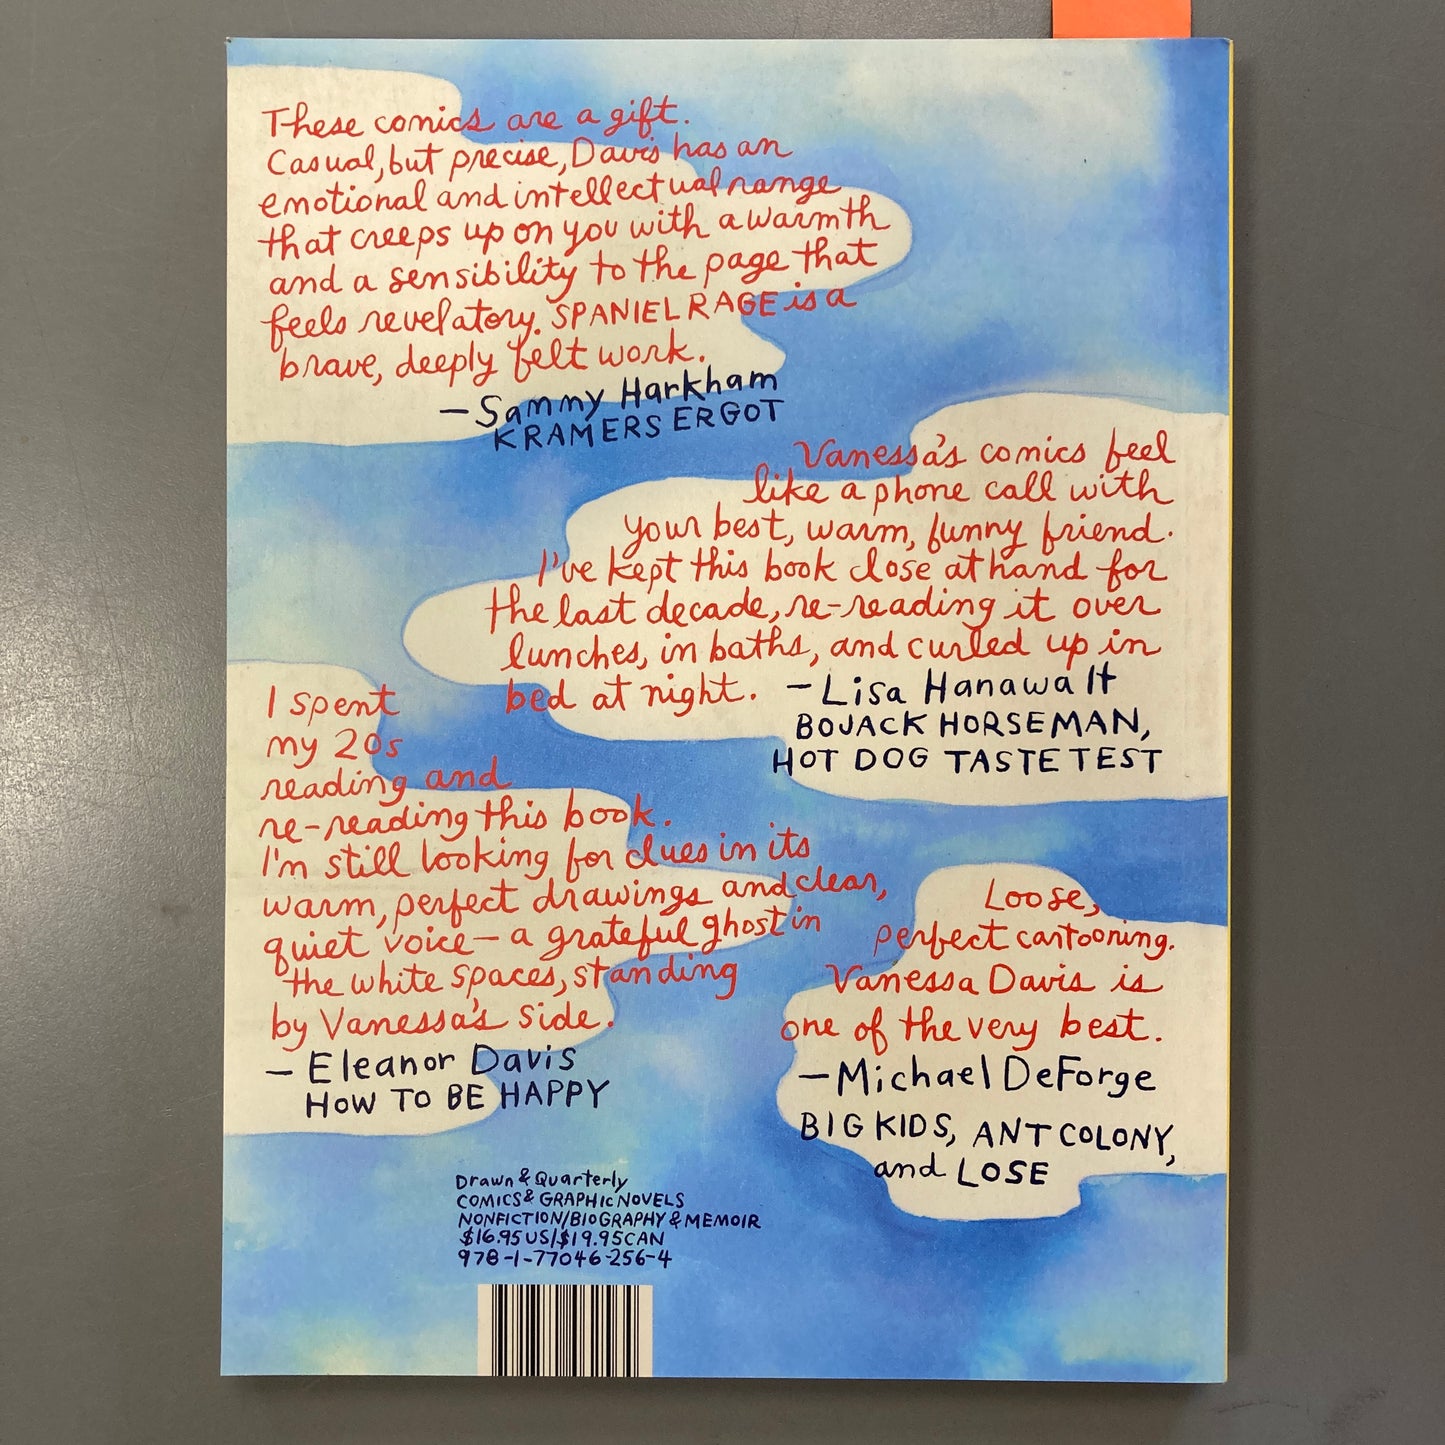 These comics are a gift.
Casual, but precise, Davis has an
emotional and intellectual range
that creeps up on you with a warmth
and a sensibility to the page that
feels revelatory. SPANIEL RAGE is a
brave, deeply felt work.
—Sammy Harkham
KRAMERS ERGOT
Vanessa's comics feel
like a phone call with
your best, warm, funny friend.
I've kept this book close at hand for
the last decade, re-reading it over
lunches, in baths, and curled up in
bed at night. —Lisa Hanawalt
BOJACK HORSEMAN,
HOT DOG TASTE TEST
I spent
my 20s
reading and
re-reading this book.
I'm still looking for clues in its
warm, perfect drawings and clear,
quiet voice—a grateful ghost in
the white spaces, standing
by Vanessa's side.
—Eleanor Davis
HOW TO BE HAPPY
Loose,
perfect cartooning.
Vanessa Davis is
one of the very best.
—Michael DeForge
BIG KIDS, ANT COLONY,
and LOSE
Drawn & Quarterly
COMICS & GRAPHIC NOVELS
NONFICTION/BIOGRAPHY & MEMOIR
$16.95US/$19.95CAN
978-1-77046-256-4